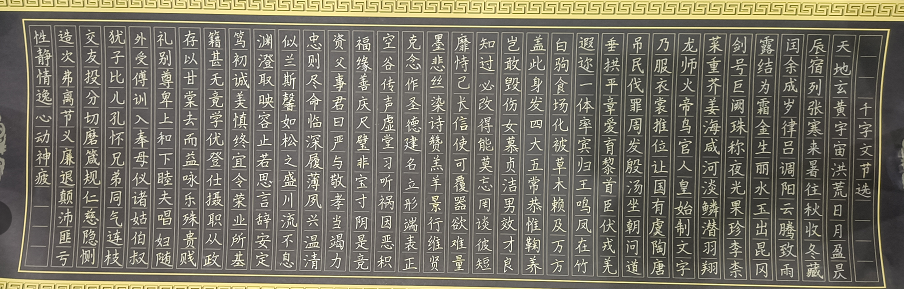 千字文节选
天地玄黄宇宙洪荒日月盈昃
辰宿列张寒来暑往秋收冬藏
闰余成岁律吕调阳云腾致雨
露结为霜金生丽水玉出昆冈
剑号巨阙珠称夜光果珍李柰
菜重芥姜海咸河淡鳞潜羽翔
龙师火帝鸟官人皇始制文字
乃服衣裳推位让国有虞陶唐
吊民伐罪周发殷汤坐朝问道
垂拱平章爱育黎首臣伏戎羌
遐迩一体率宾归王鸣凤在竹
白驹食场化被草木赖及万方
盖此身发四大五常恭惟鞠养
岂敢毁伤女慕贞洁男效才良
知过必改得能莫忘罔谈彼短
靡恃己长信使可覆器欲难量
墨悲丝染诗赞羔羊景行维贤
克念作圣德建名立形端表正
空谷传声虚堂习听祸因恶积
福缘善庆尺璧非宝寸阴是竞
资父事君曰严与敬孝当竭力
忠则尽命临深履薄夙兴温清
似兰斯馨如松之盛川流不息
渊澄取映容止若思言辞安定
笃初诚美慎终宜令荣业所基
籍甚无竟学优登仕摄职从政
存以甘棠去而益咏乐殊贵贱
礼别尊卑上和下睦夫唱妇随
外受傅训入奉母仪诸姑伯叔
犹子比儿孔怀兄弟同气连枝
交友投分切磨箴规仁慈隐恻
造次弗离节义廉退颠沛匪亏
性静情逸心动神疲